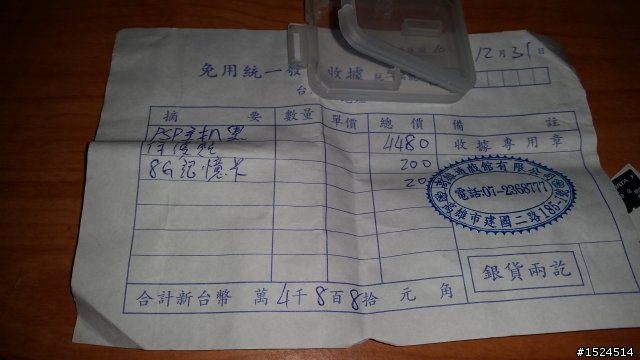 10
12月31日
免用統一發 收據
台
摘 要 數量 單價 總 價 備 註
PSP主机黑 4480 收據專用章
保護貼 200
8G記憶卡 20
有限公司
電話:07-2368777
高雄市建國二路
銀貨兩訖
合計新台幣 萬4千8百8拾 元 角
#1524514